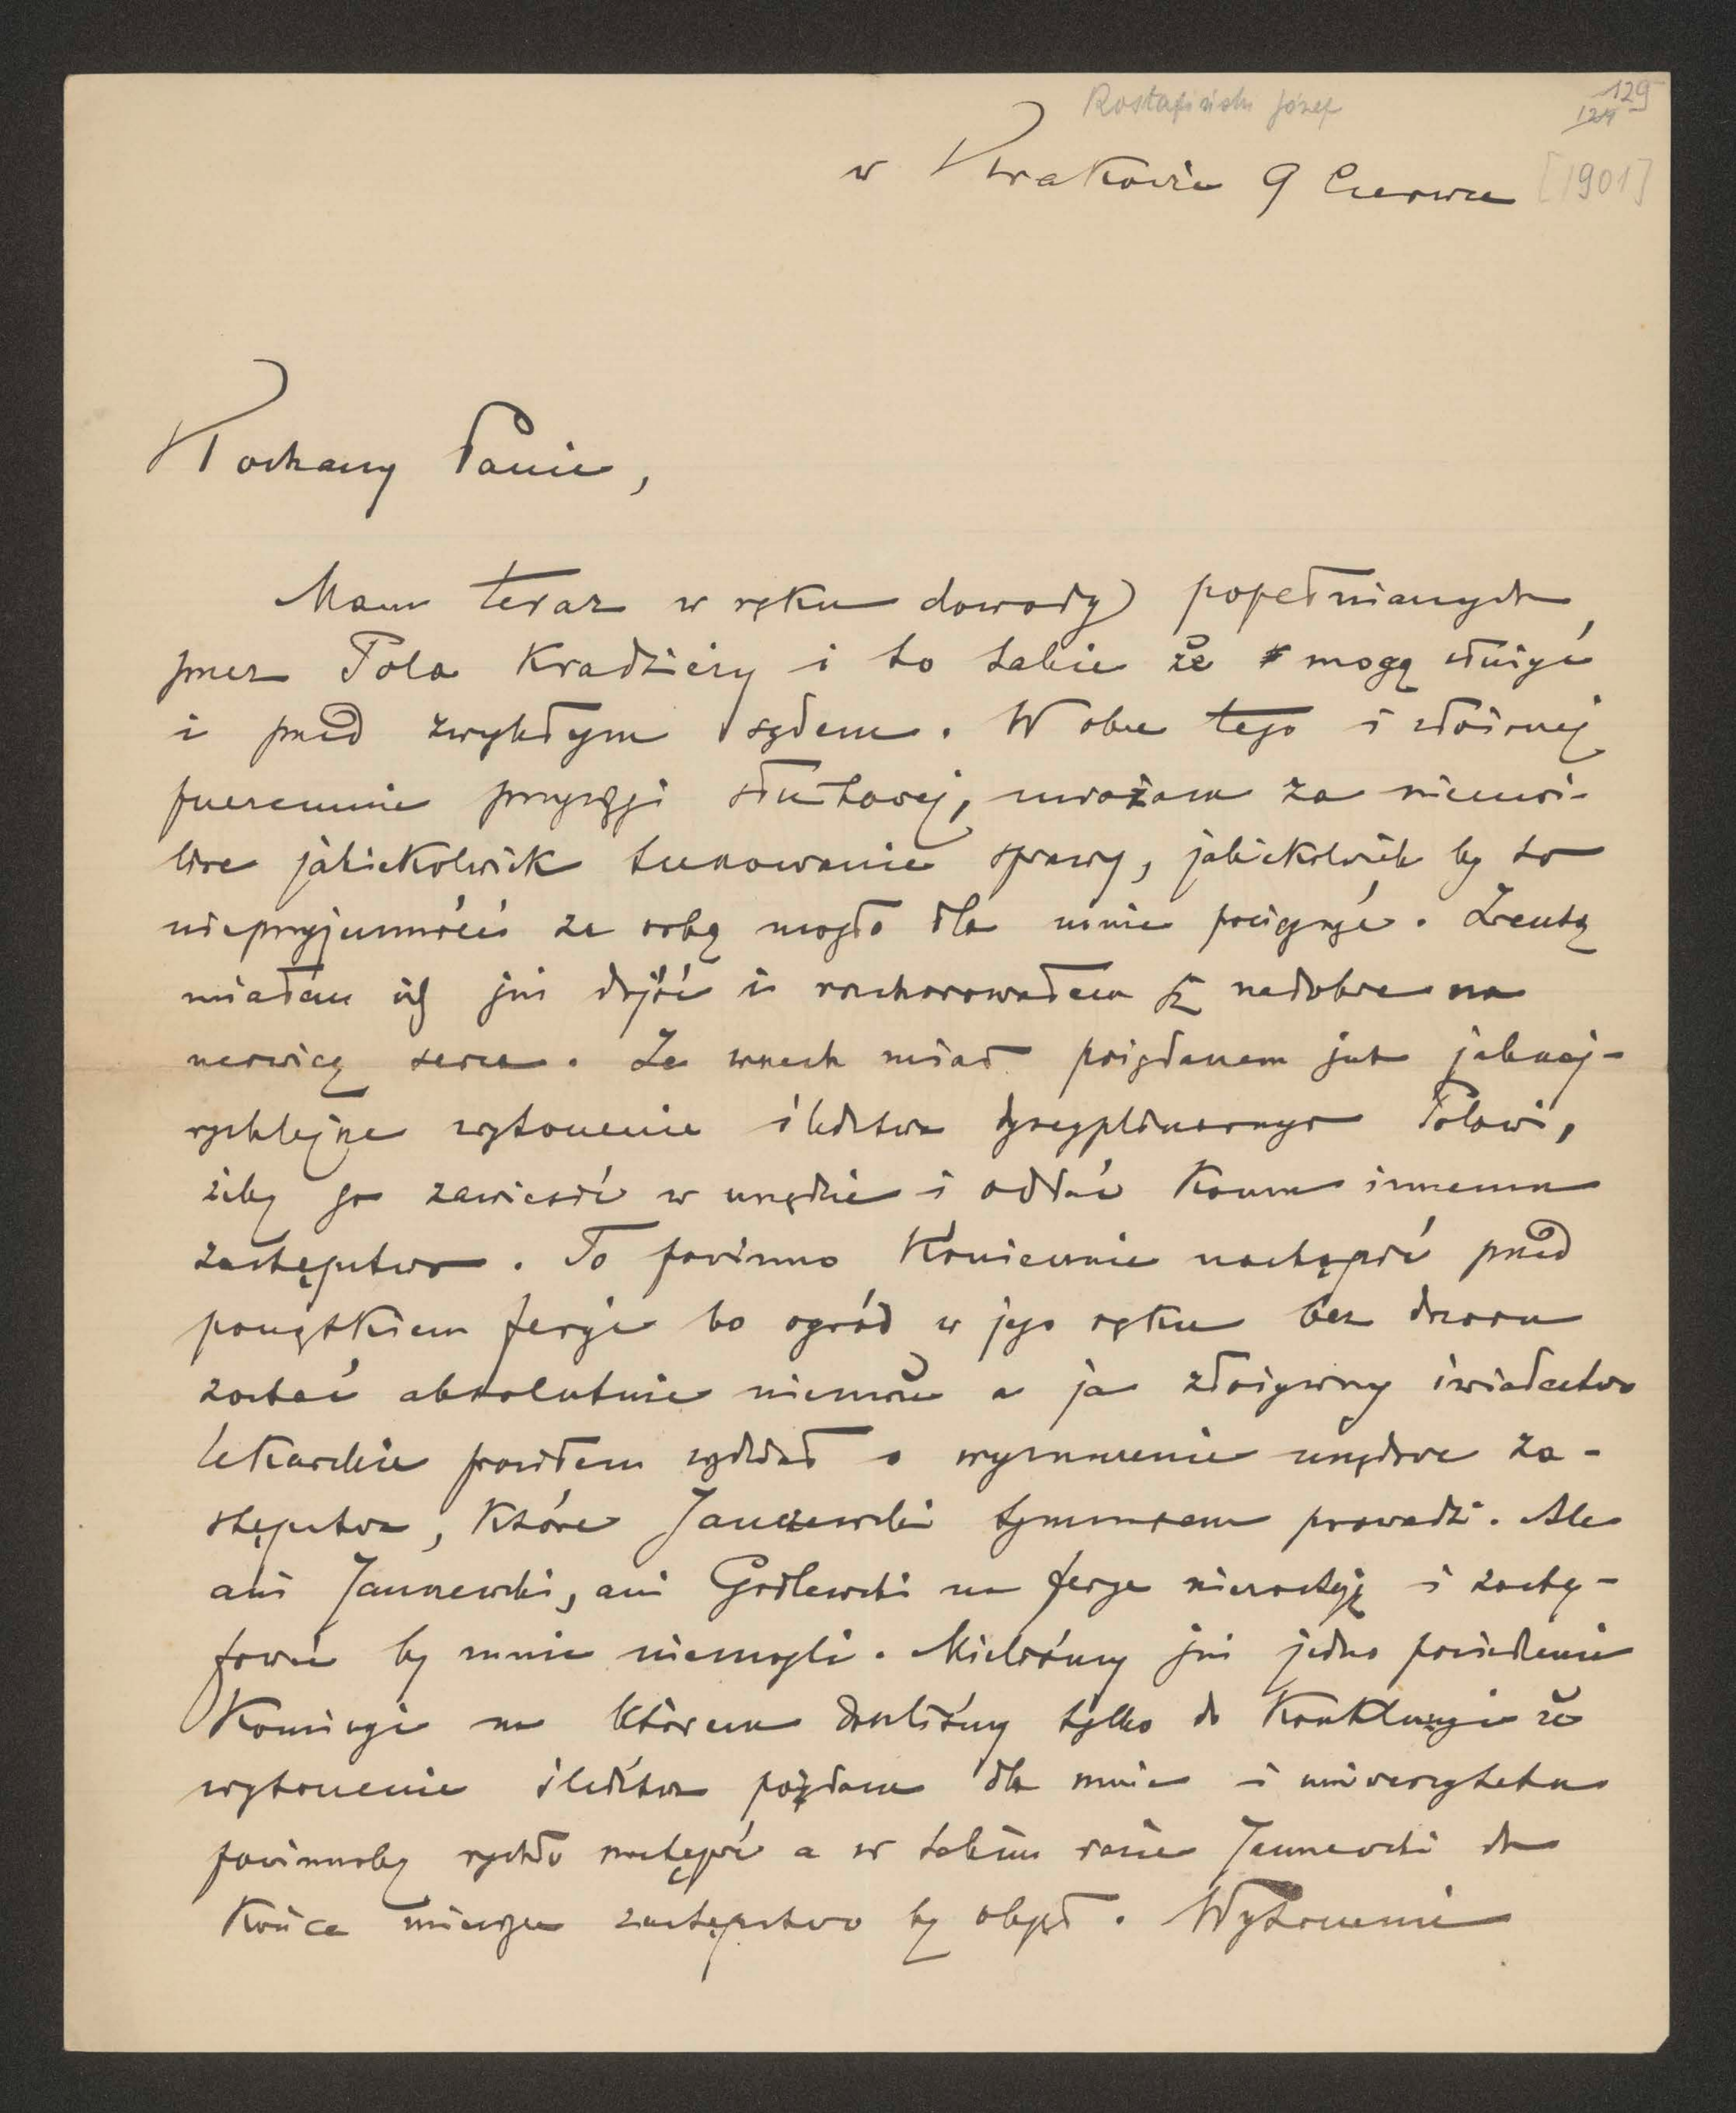 Rostafiński Józef
129
124
w Krakowie 9 Czerwca [1901]
Kochany Panie,
Mam teraz w ręku dowody popełnianych
przez Pola Kradzieży i to takie że mogą służyć
i przed zwykłym sądem. Wobec tego i złożonej
przezemnie przysięgi służbowej, uważam za niemo-
żliwe jakiekolwiek tuszowanie sprawy, jakiekolwiek by to
nieprzyjemności ze sobą mogło dla mnie pociągnąć. Zresztą
miałem ich już dość i rozchorowałem się niedobrze na
nerwicę serca. Ze wszech miar pożądanem jest jaknaj-
rychlejsze wytoczenie śledztwa dyscyplinarnego Polowi,
żeby go zawiesić w urzędzie i oddać komu innemu
zastępstwo. To powinno koniecznie nastąpić przed
początkiem feryi bo ogród w jego ręku bez dozoru
zostać absolutnie niemoże a ja złożywszy świadectwo
lekarskie prosiłem wydział o wyznaczenie urzędowe za-
stępstwa, które Janczewski tymczasem prowadzi. Ale
ani Janczewski, ani Godlewski na ferye niezostają i zastę-
pować by mnie niemogli. Mieliśmy już jedno posiedzenie
Komisyi na którem doszliśmy tylko do Konkluzyi że
wytoczenie śledztwa pożądane dla mnie i uniwersytetu
powinnoby rychło nastąpić a w takim razie Janczewski do
Końca miesiąca zastępstwo by objął. Wytoczenie